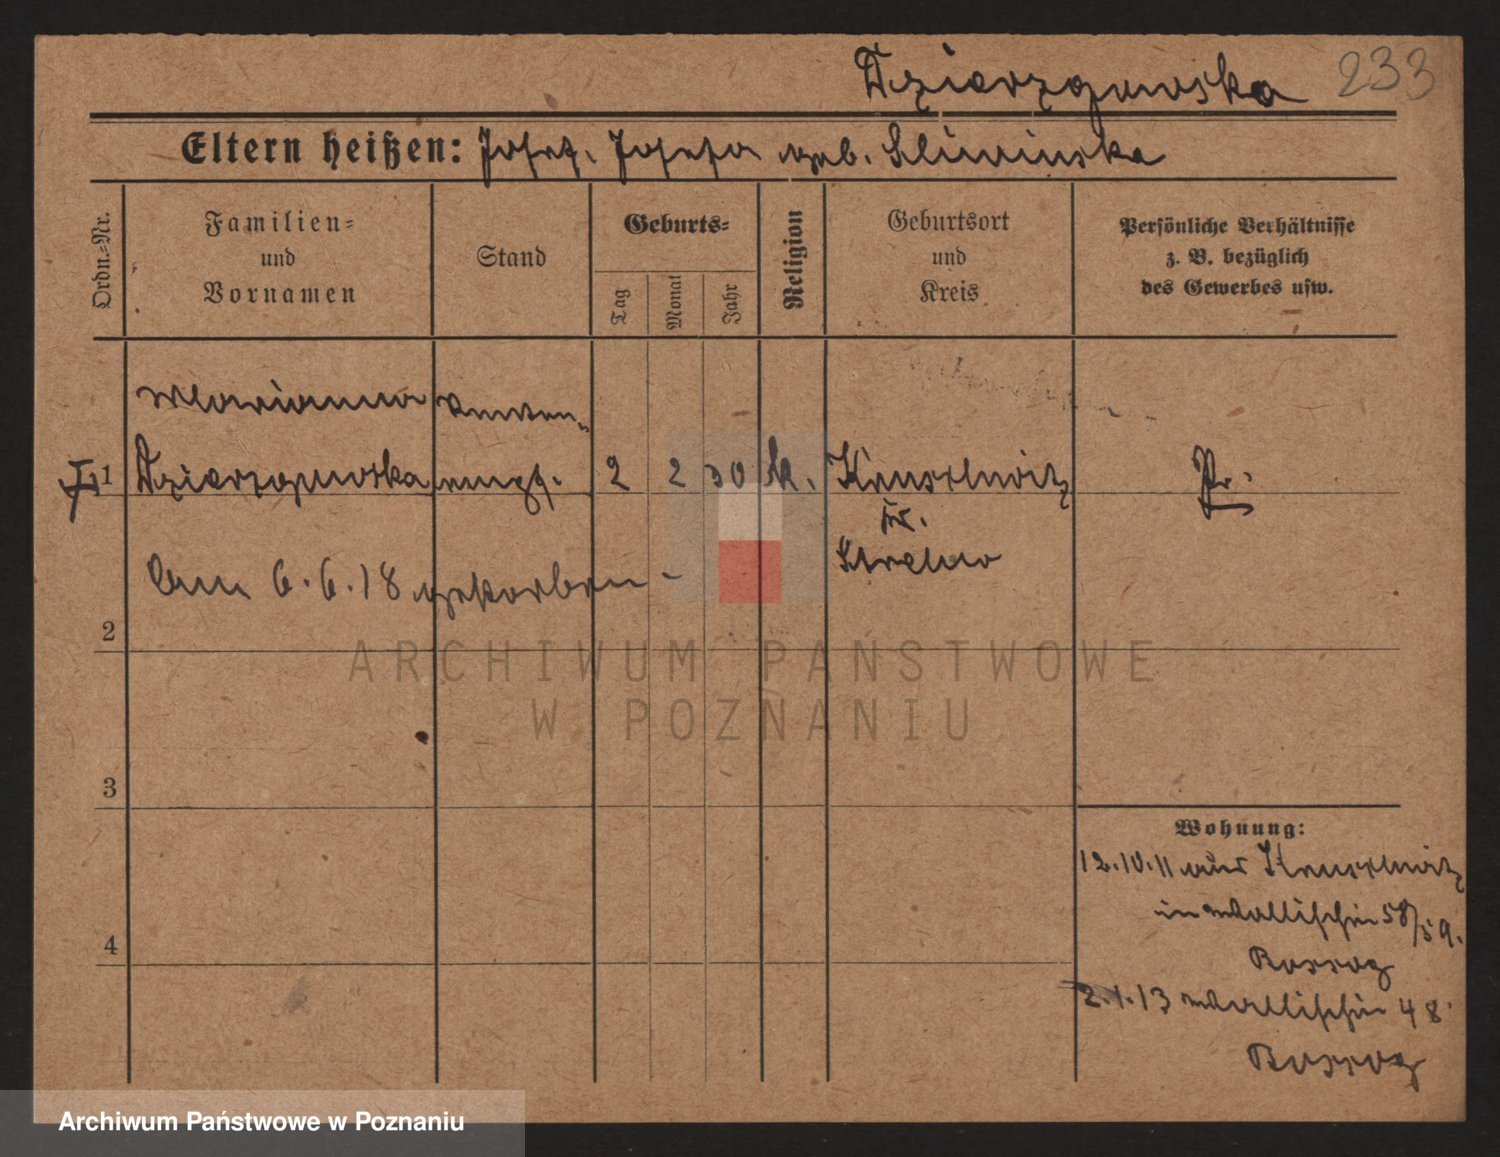 Dzierzgowska 233
Eltern heißen: Josef. Josefa geb. Sliwinska
Ordn.-Nr.
Familien=
und
Vornamen
Stand
Geburts=
Tag
Monat
Jahr
Religion
Geburtsort
und
Kreis
Persönliche Verhältnisse
z. B. bezüglich
des Gewerbes usw.
Marianna
1 Dzierzgowska 2 2 30 k. Kruschwitz Pr.
Kr.
Strelno
Am 6.6.18 gestorben
2
ARCHIWUM PAŃSTWOWE
W POZNANIU
3
Wohnung:
12.10.11 aus Kruschwitz
in Wallischei 58/59.
4
2.1.13 Wallischei 48
Archiwum Państwowe w Poznaniu